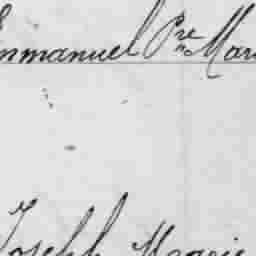 Emmanuel Pre Mari
Joseph Marie